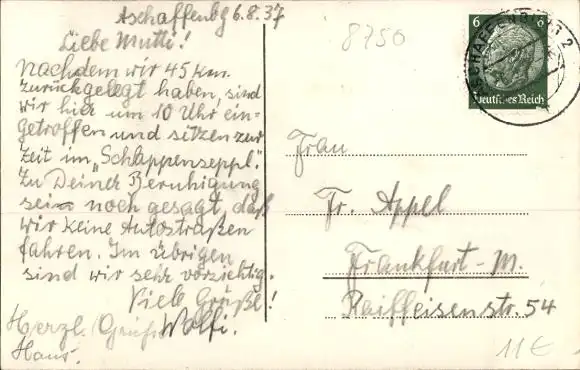 Aschaffenbg 6.8.37
Liebe Mutti!
Nachdem wir 45 km.
zurückgelegt haben, sind
wir hier um 10 Uhr ein-
getroffen und sitzen zur
Zeit im „Schlappenseppl".
Zu Deiner Beruhigung
sei noch gesagt, daß
wir keine Autostraßen
fahren. Im übrigen
sind wir sehr vorsichtig.
Viele Grüße!
Wolfi.
Herzl. Grüße
Hans.
8750
6 6
Deutsches Reich
ASCHAFFENBURG 2
Frau
Fr. Appel
Frankfurt-M.
Raiffeisenstr. 54
11€